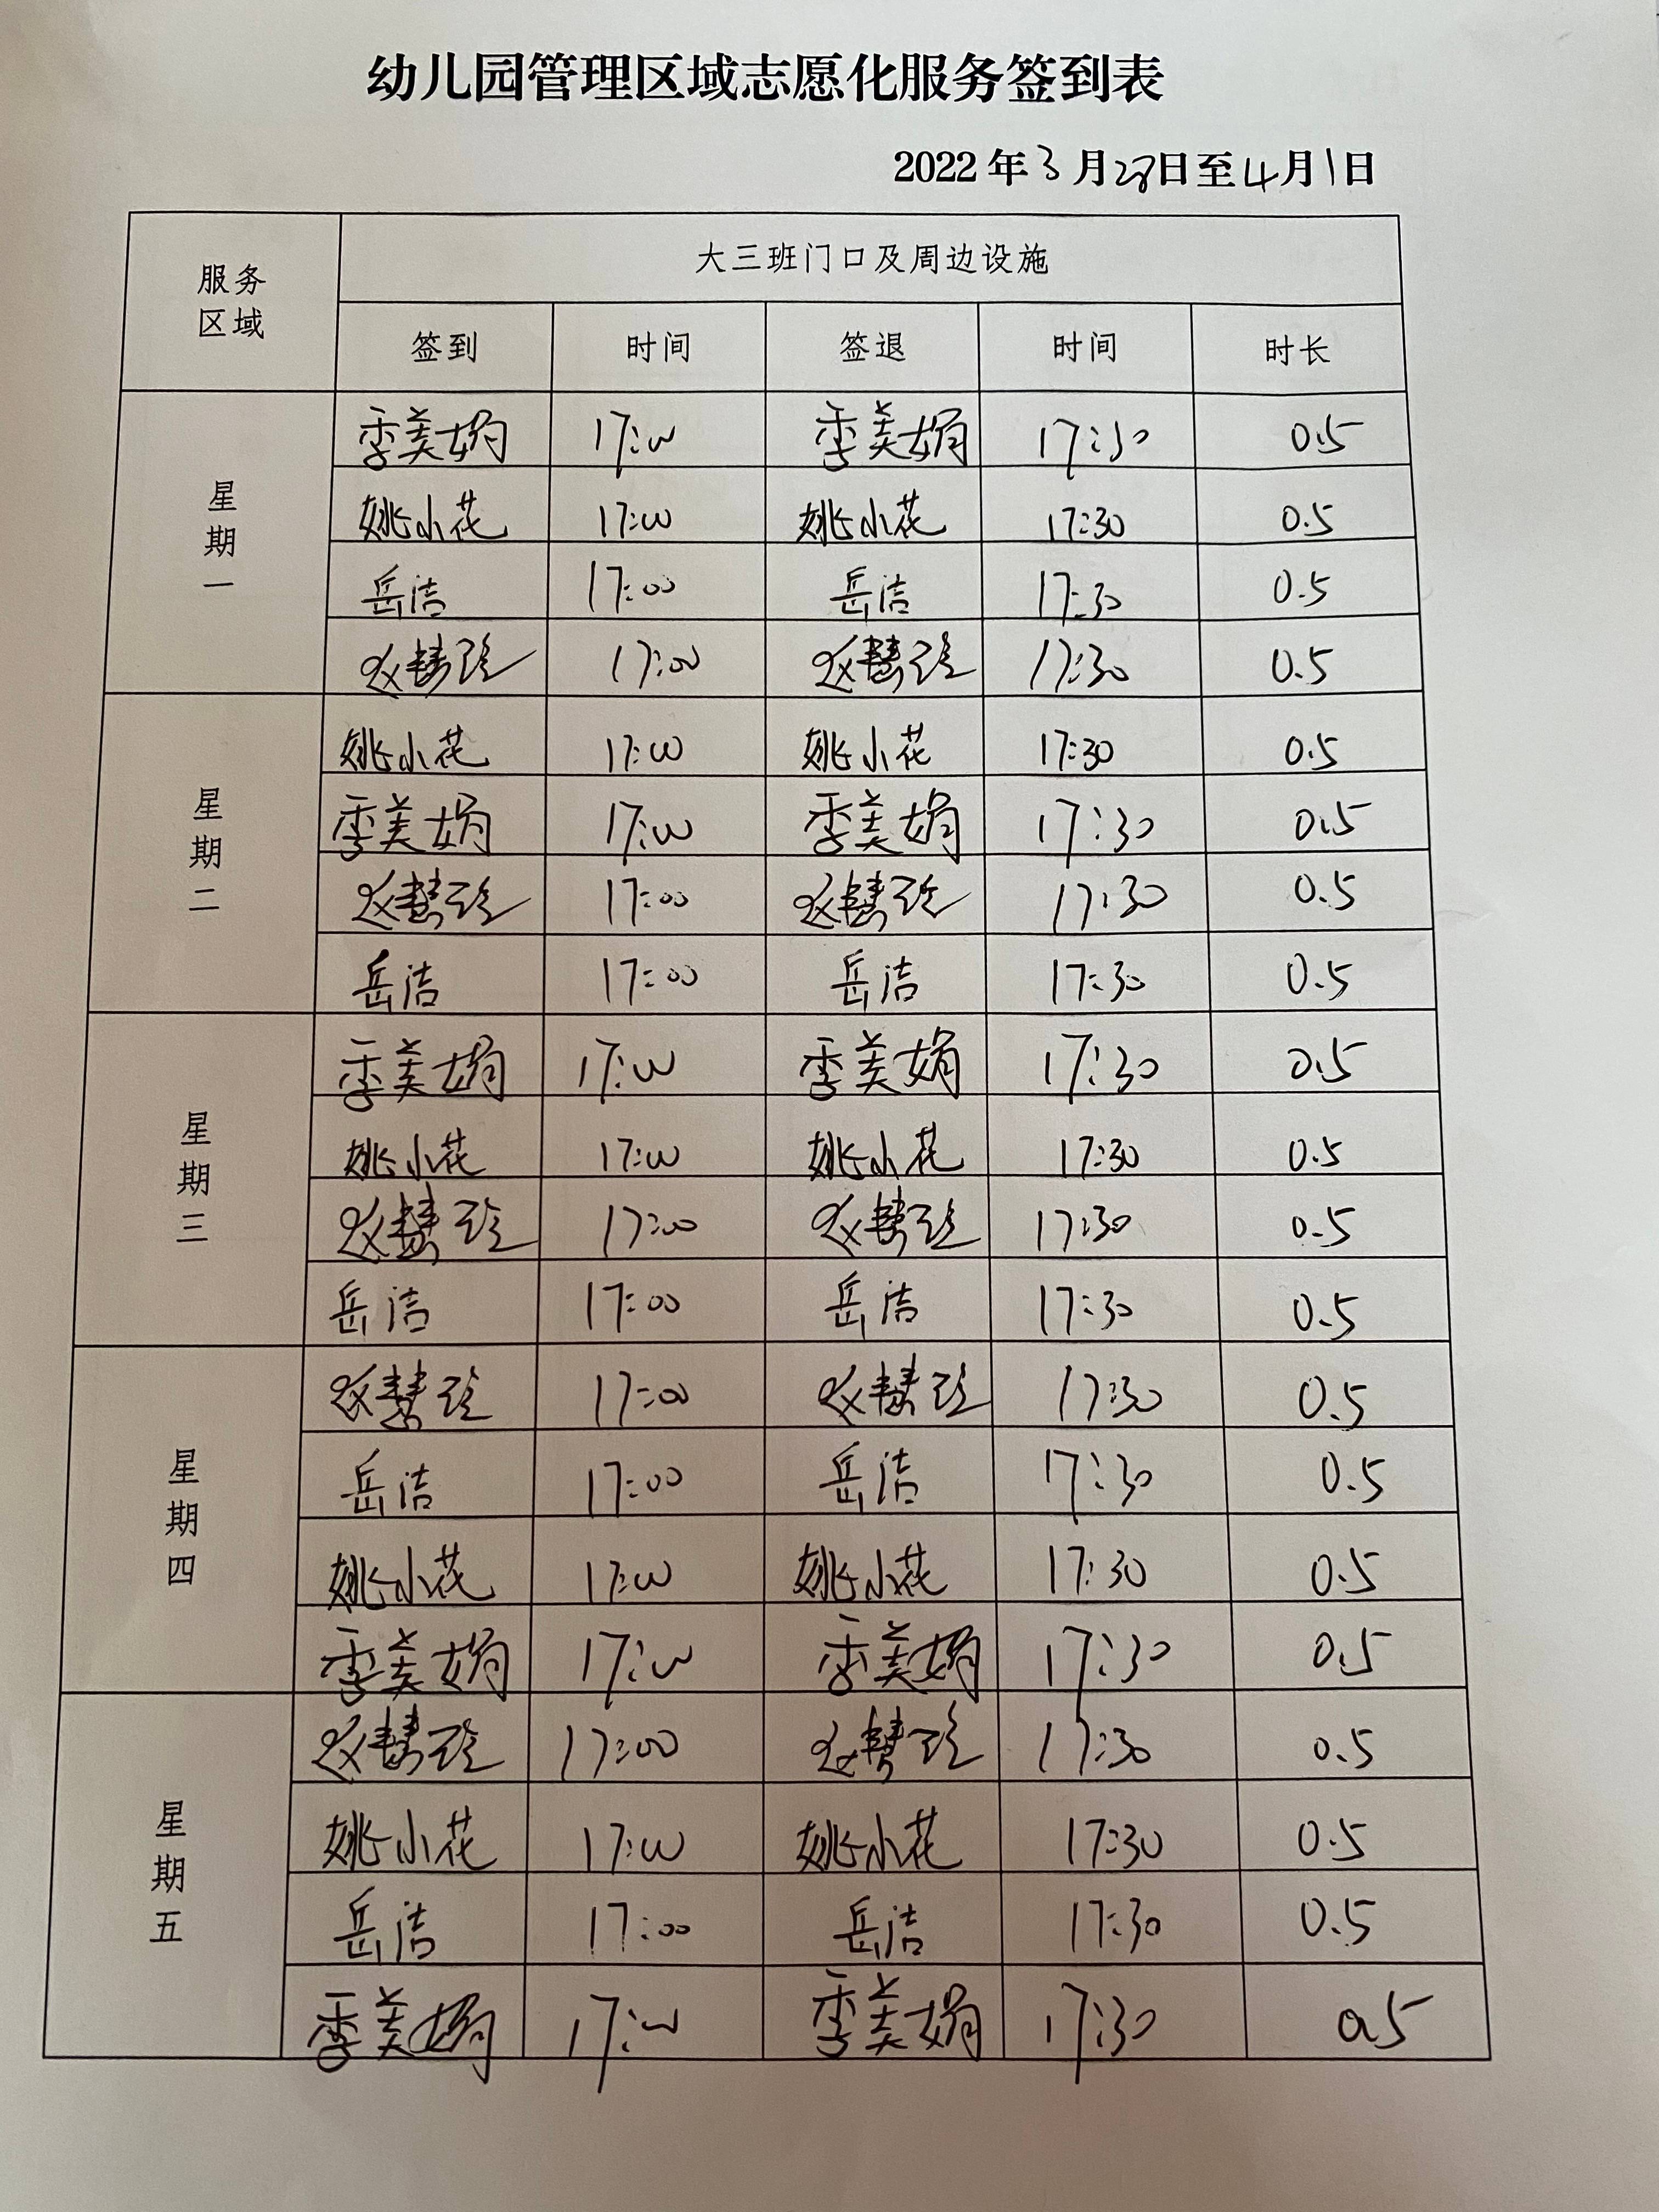 幼儿园管理区域志愿化服务签到表
2022年3月28日至4月1日
服务区域 大三班门口及周边设施
签到 时间 签退 时间 时长
星期一
季美娟 17:00 季美娟 17:30 0.5
姚小花 17:00 姚小花 17:30 0.5
岳洁 17:00 岳洁 17:30 0.5
赵慧珍 17:00 赵慧珍 17:30 0.5
星期二
姚小花 17:00 姚小花 17:30 0.5
季美娟 17:00 季美娟 17:30 0.5
赵慧珍 17:00 赵慧珍 17:30 0.5
岳洁 17:00 岳洁 17:30 0.5
星期三
季美娟 17:00 季美娟 17:30 0.5
姚小花 17:00 姚小花 17:30 0.5
赵慧珍 17:00 赵慧珍 17:30 0.5
岳洁 17:00 岳洁 17:30 0.5
星期四
赵慧珍 17:00 赵慧珍 17:30 0.5
岳洁 17:00 岳洁 17:30 0.5
姚小花 17:00 姚小花 17:30 0.5
季美娟 17:00 季美娟 17:30 0.5
星期五
赵慧珍 17:00 赵慧珍 17:30 0.5
姚小花 17:00 姚小花 17:30 0.5
岳洁 17:00 岳洁 17:30 0.5
季美娟 17:00 季美娟 17:30 0.5